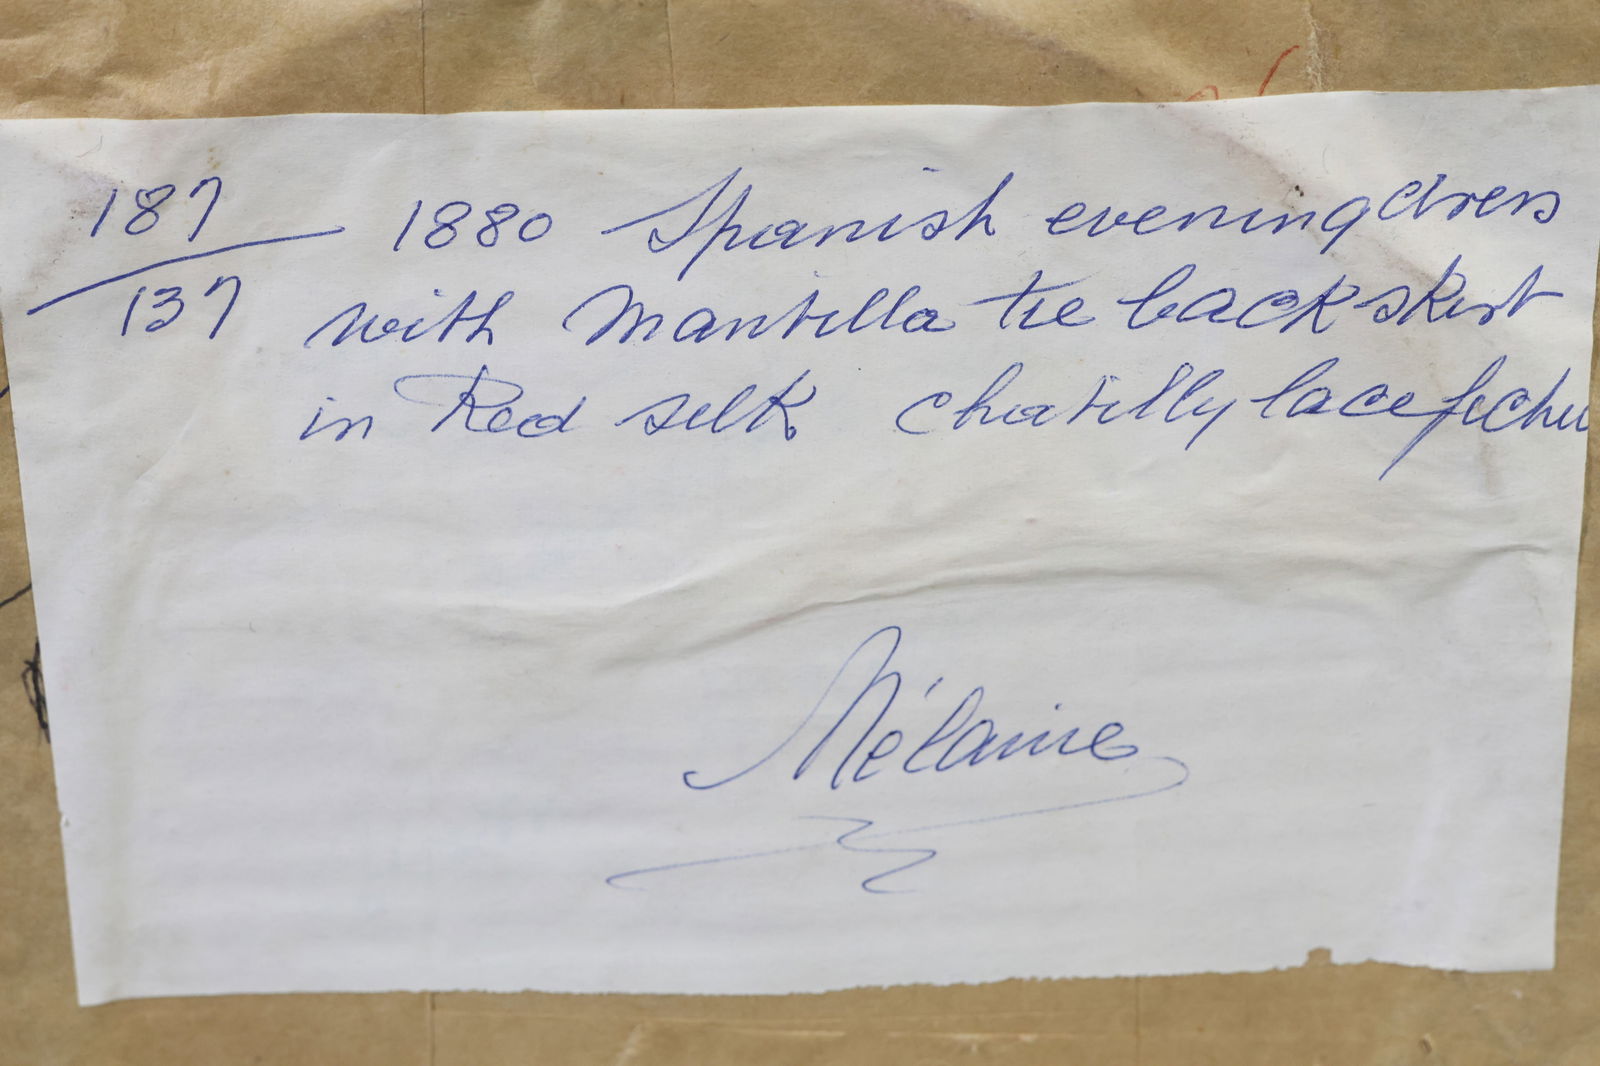 187
137
1880 Spanish evening dress
with Mantilla tie back skirt
in Red silk chatilly lace fichu
Mélaine